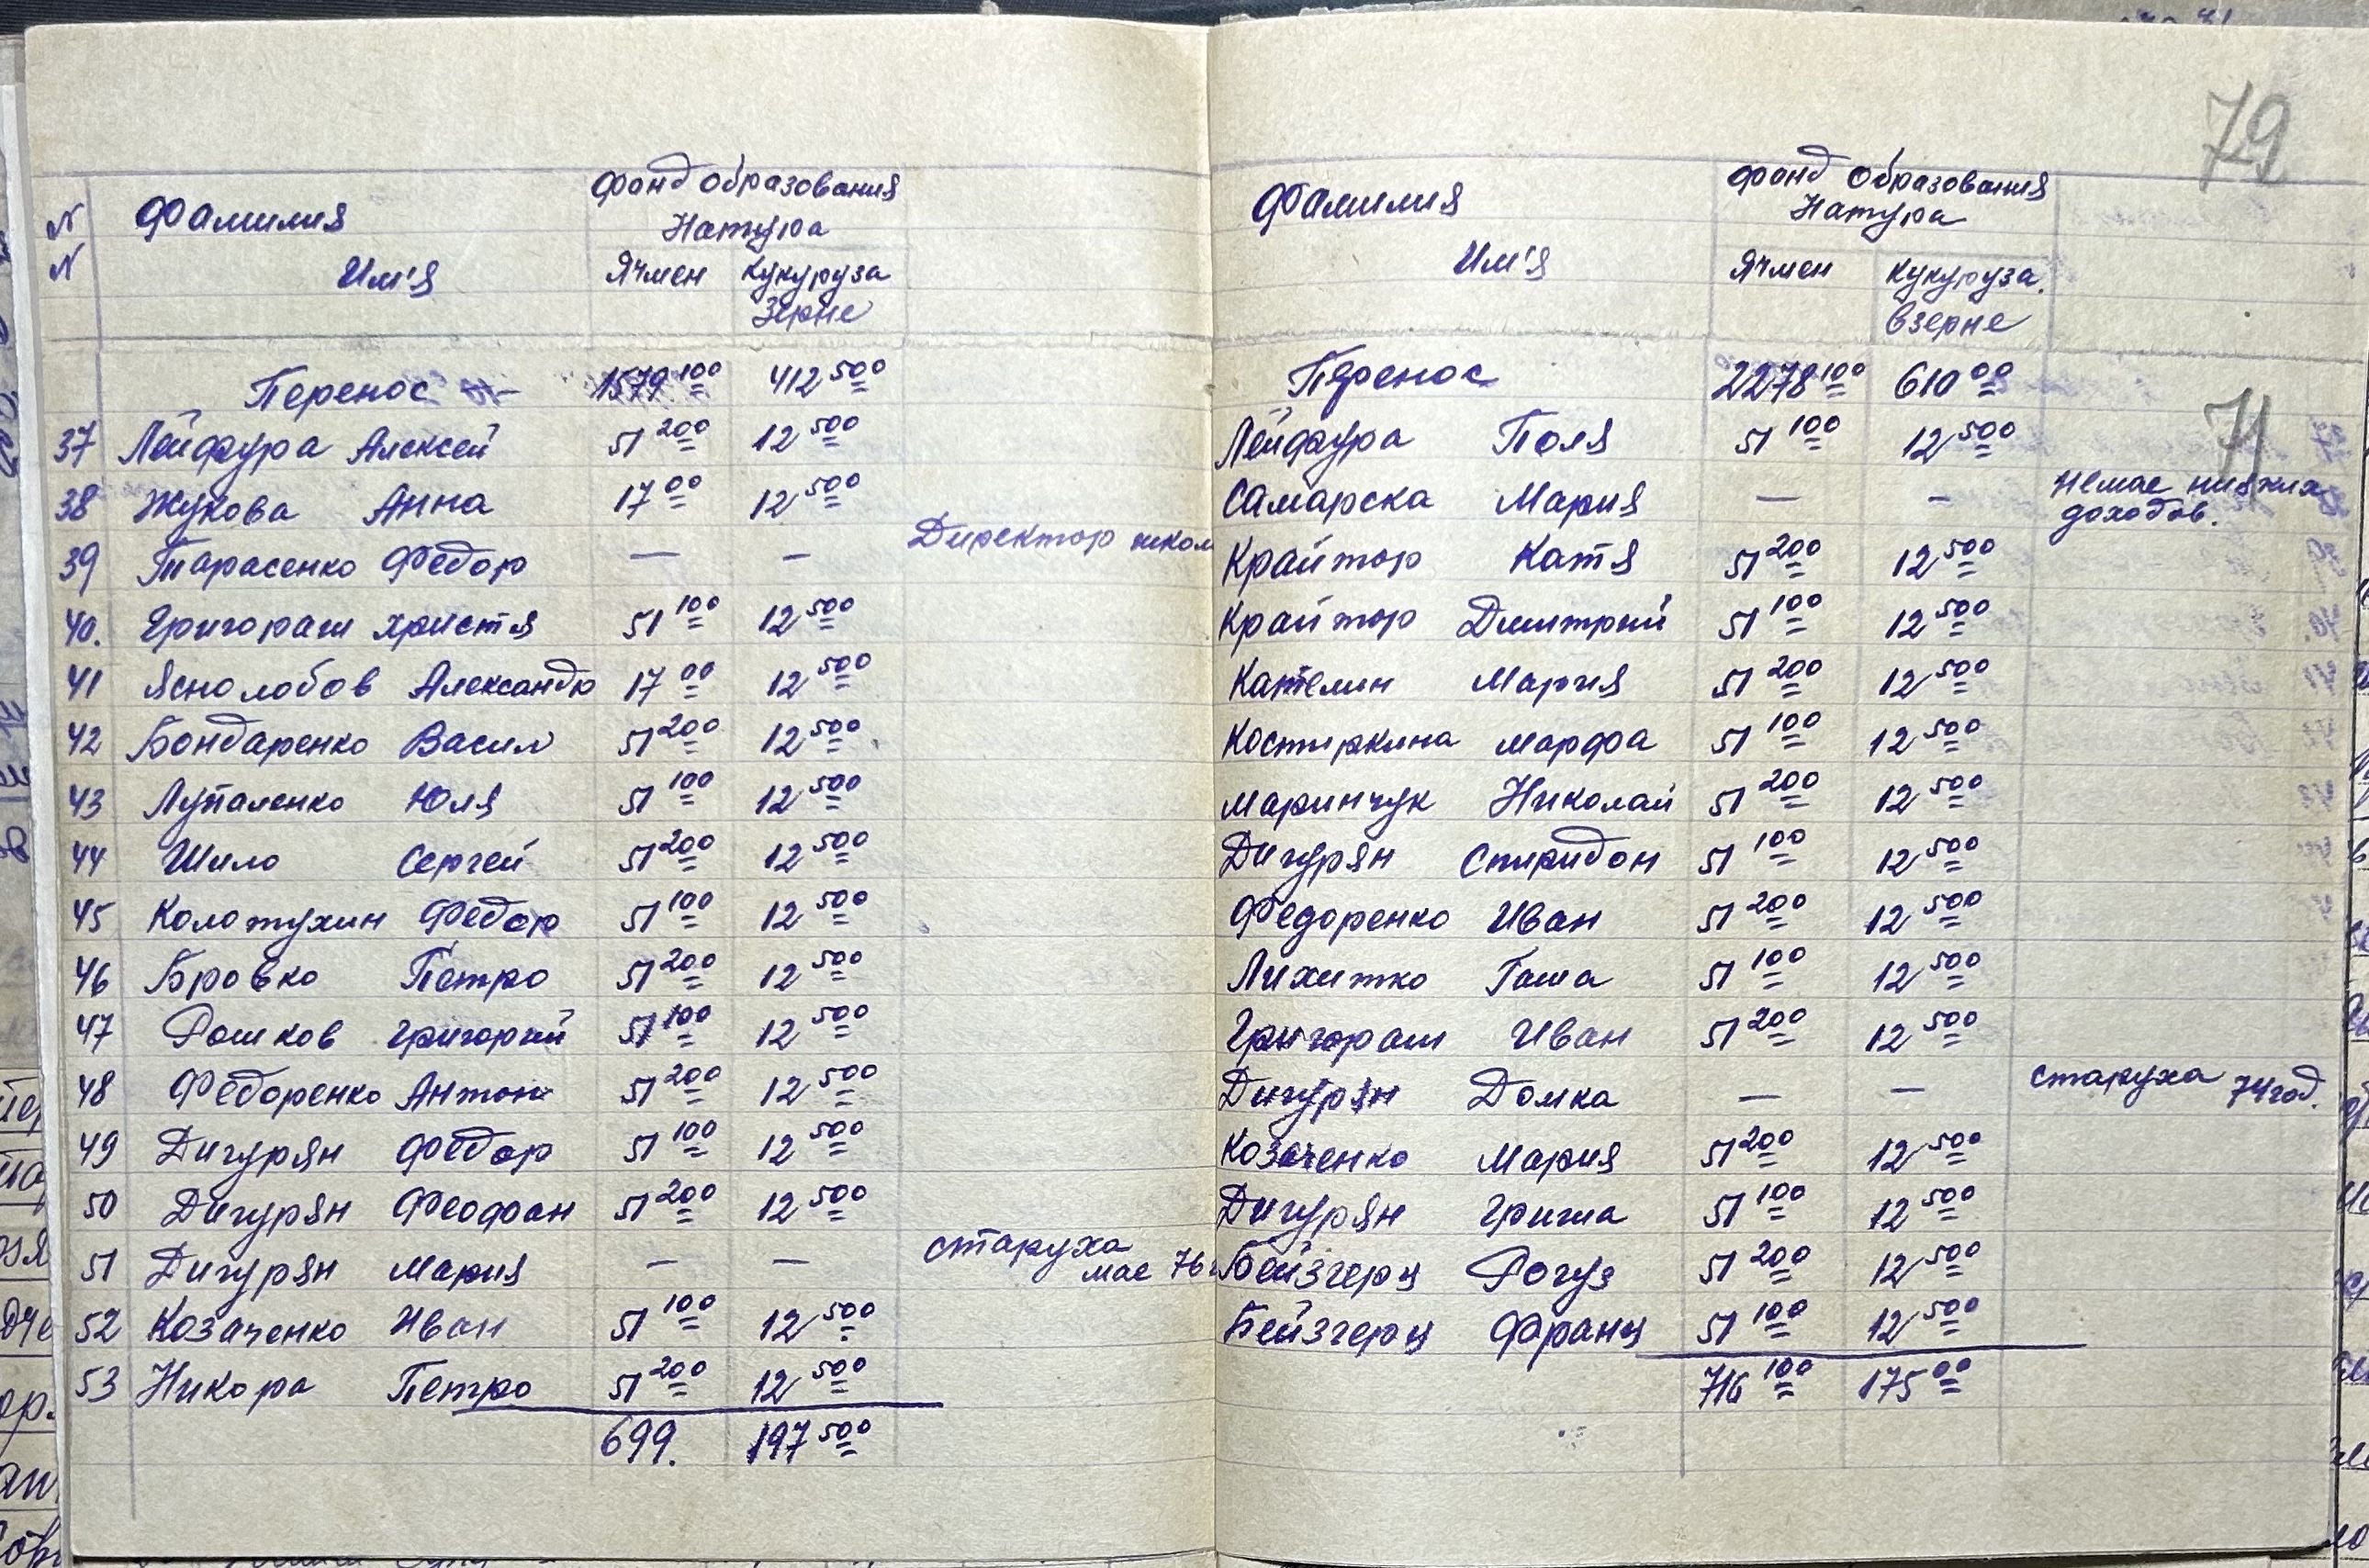 79
N
N
Фамилия
Им'я
Фонд Образования
Натура
Ячмен
Кукуруза
Зерне
Перенос 1579 100 412 500
37 Лейфура Алексей 51 200 12 500
38 Жукова Анна 17 00 12 500
39 Тарасенко Федор — — Директор школ
40. Григораш Христя 51 100 12 500
41 Яснолобов Александр 17 00 12 500
42 Бондаренко Васил 51 200 12 500
43 Лупаленко Юля 51 100 12 500
44 Шило Сергей 51 200 12 500
45 Колотухин Федор 51 100 12 500
46 Бровко Петро 51 200 12 500
47 Рошков Григорий 51 100 12 500
48 Федоренко Антон 51 200 12 500
49 Дигурян Федор 51 100 12 500
50 Дигурян Феофан 51 200 12 500
51 Дигурян Мария — — старуха
мае 76
52 Козаченко Иван 51 100 12 500
53 Никора Петро 51 200 12 500
699. 197 500
Фамилия
Им'я
Фонд Образования
Натура
Ячмен
Кукуруза.
Взерне
Перенос 2278 100 610 00
71
Лейфура Поля 51 100 12 500
Самарска Мария — — немае нияких
доходов.
Крайтор Катя 51 200 12 500
Крайтор Дмитрий 51 100 12 500
Кателин Мария 51 200 12 500
Костиркина Марфа 51 100 12 500
Маринчук Николай 51 200 12 500
Дигурян Спиридон 51 100 12 500
Федоренко Иван 51 200 12 500
Лихитко Гаша 51 100 12 500
Григораш Иван 51 200 12 500
Дигурян Домка — — старуха 74 год.
Козаченко Мария 51 200 12 500
Дигурян Гриша 51 100 12 500
Бейзгерц Рогуз 51 200 12 500
Бейзгерц Франц 51 100 12 500
716 100 175 00